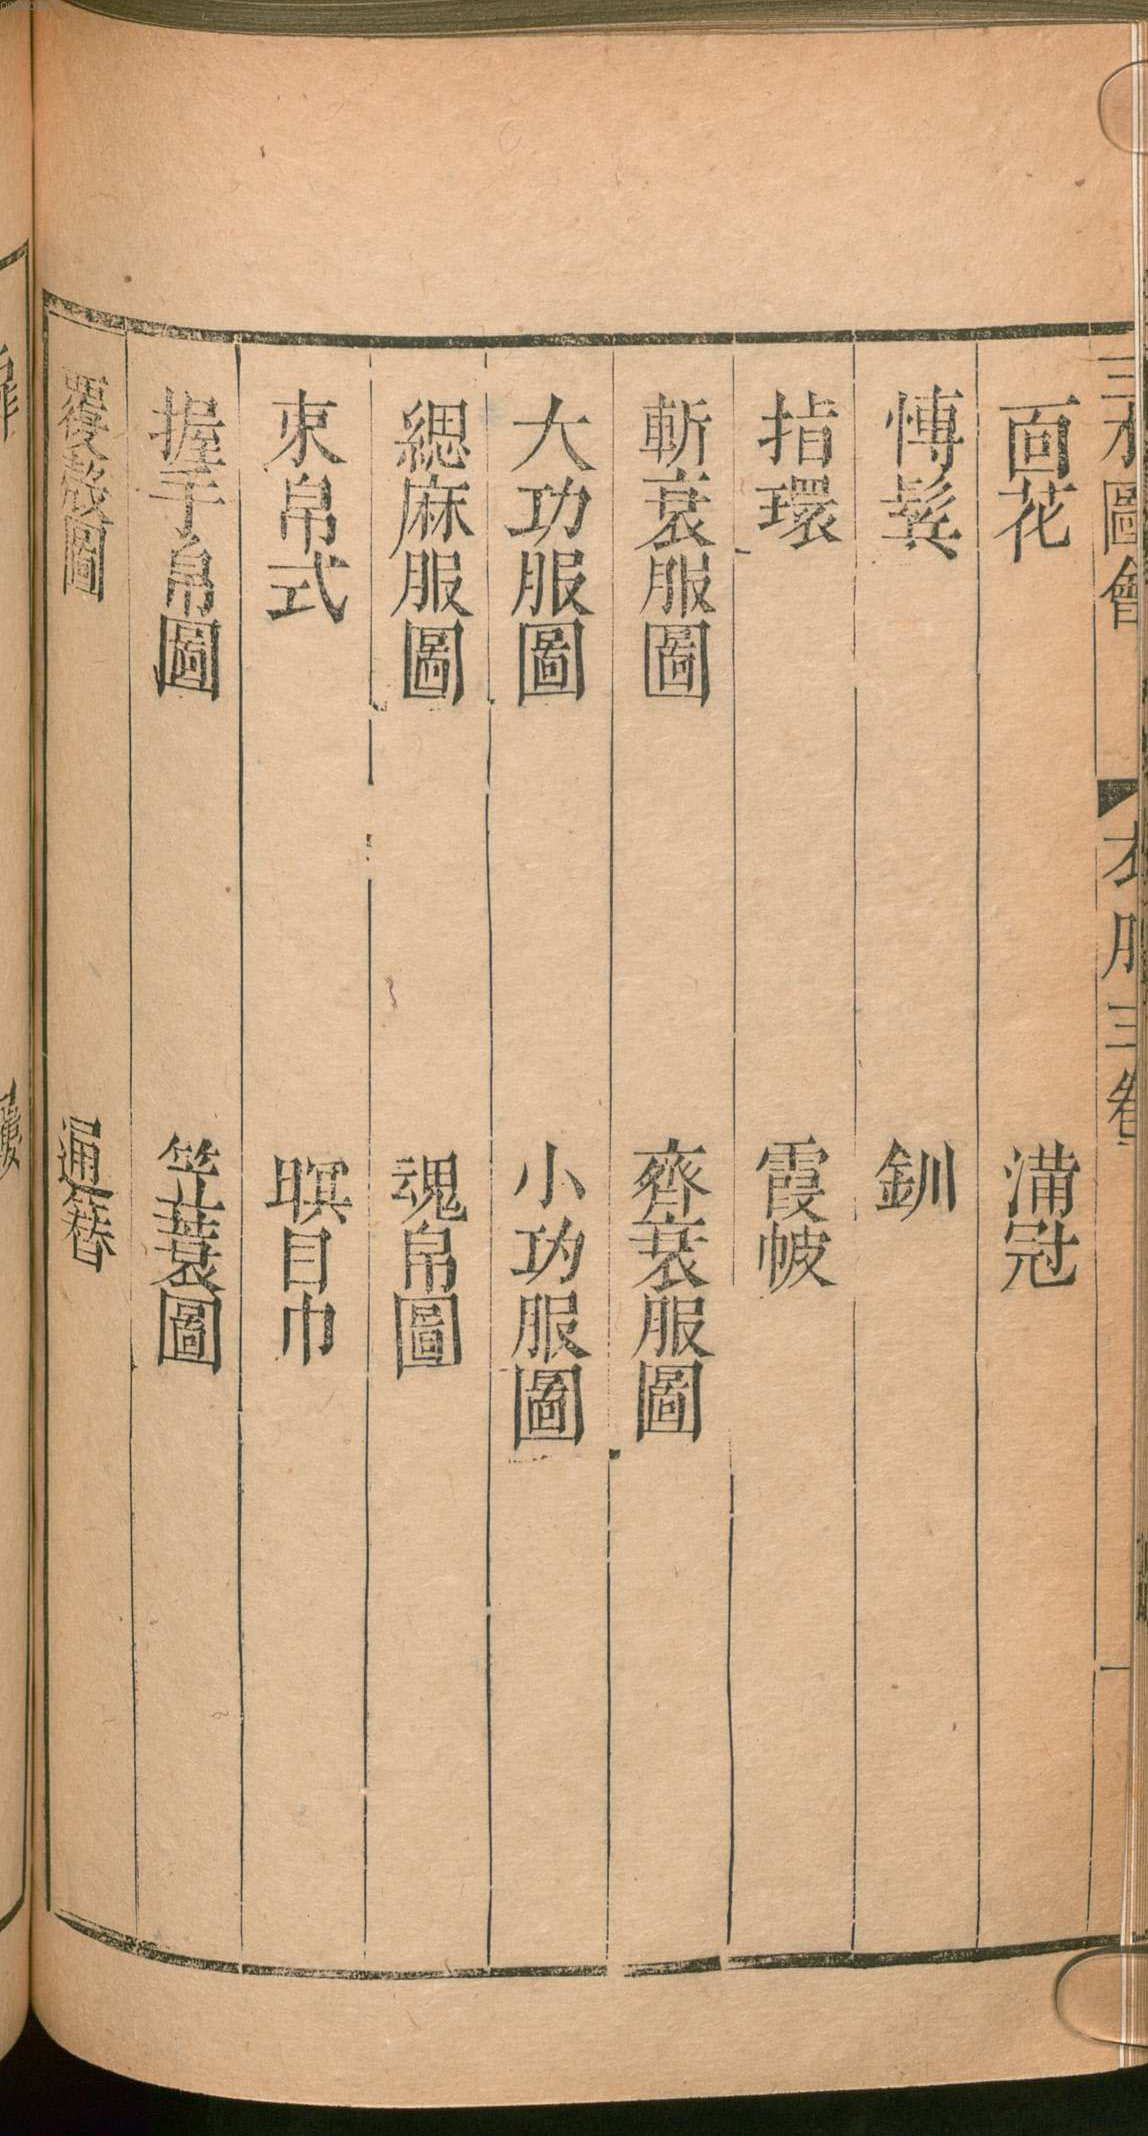 三才圖會 衣服三卷 一
面花 満冠
愽鬓 釧
指環 霞帔
斬衰服圖 齊衰服圖
大功服圖 小功服圖
緦麻服圖 魂帛圖
束帛式 瞑目巾
握手帛圖 笠蓑圖
覆殻圖 通簪